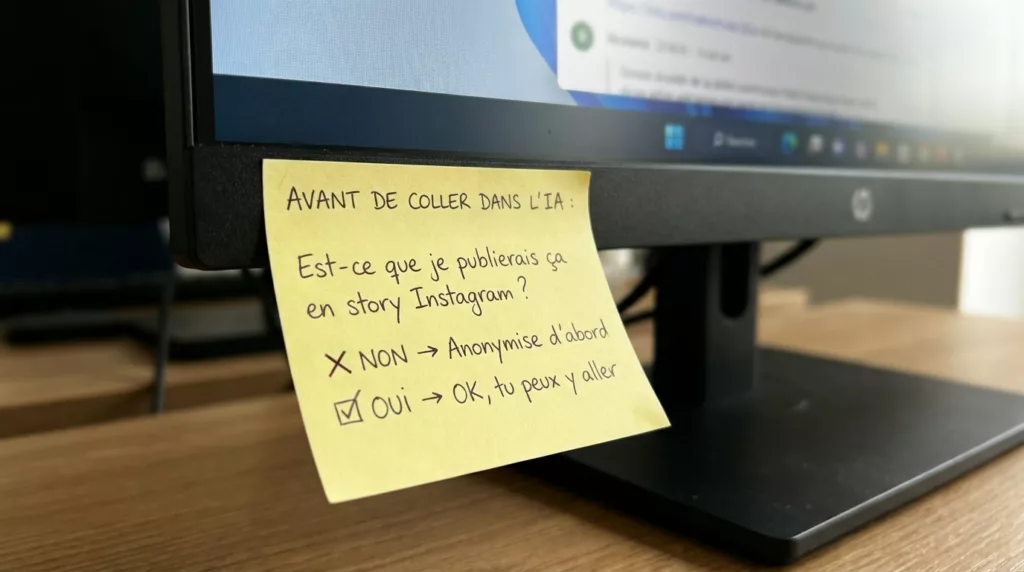 AVANT DE COLLER DANS L'IA :
Est-ce que je publierais ça
en story Instagram ?
X NON → Anonymise d'abord
☑ OUI → OK, tu peux y aller
hp